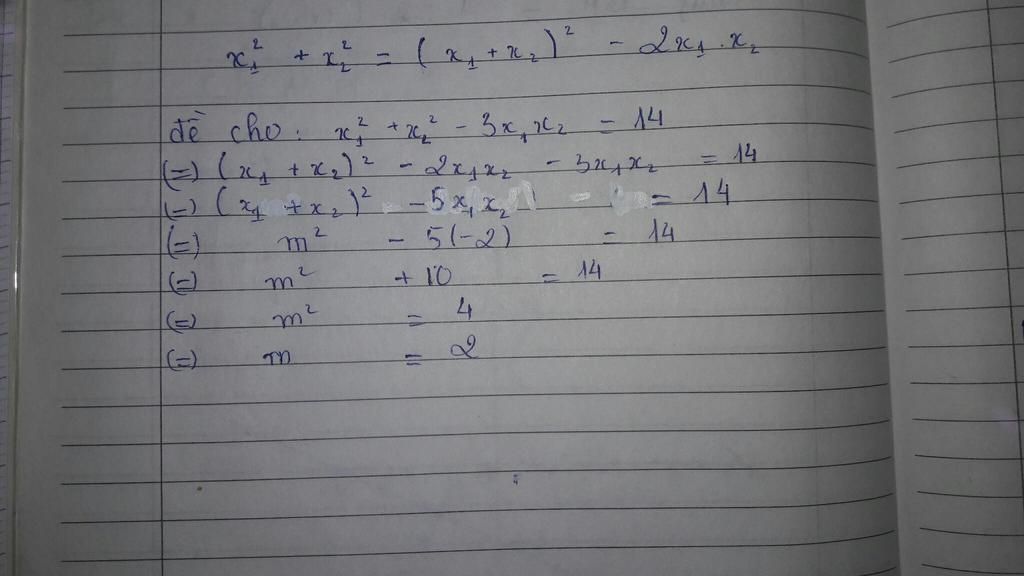 x₁² + x₂² = (x₁ + x₂)² - 2x₁.x₂
đề cho: x₁² + x₂² - 3x₁x₂ = 14
(=) (x₁ + x₂)² - 2x₁x₂ - 3x₁x₂ = 14
(=) (x₁ + x₂)² - 5x₁x₂ = 14
(=) m² - 5(-2) = 14
(=) m² + 10 = 14
(=) m² = 4
(=) m = 2